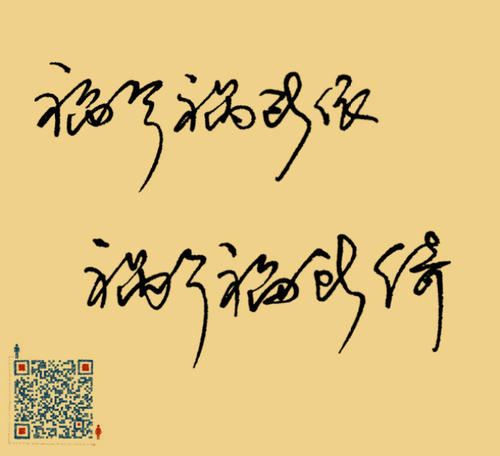 福兮祸所依
祸兮福所倚